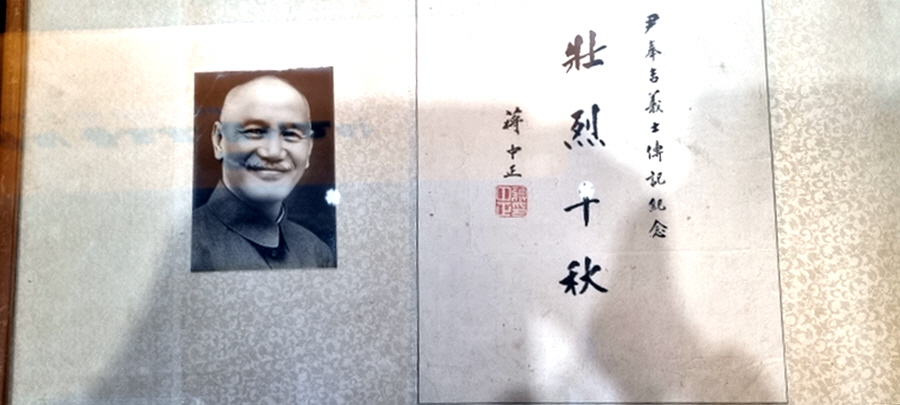 尹奉吉義士傳記紀念
壯烈千秋
蔣中正